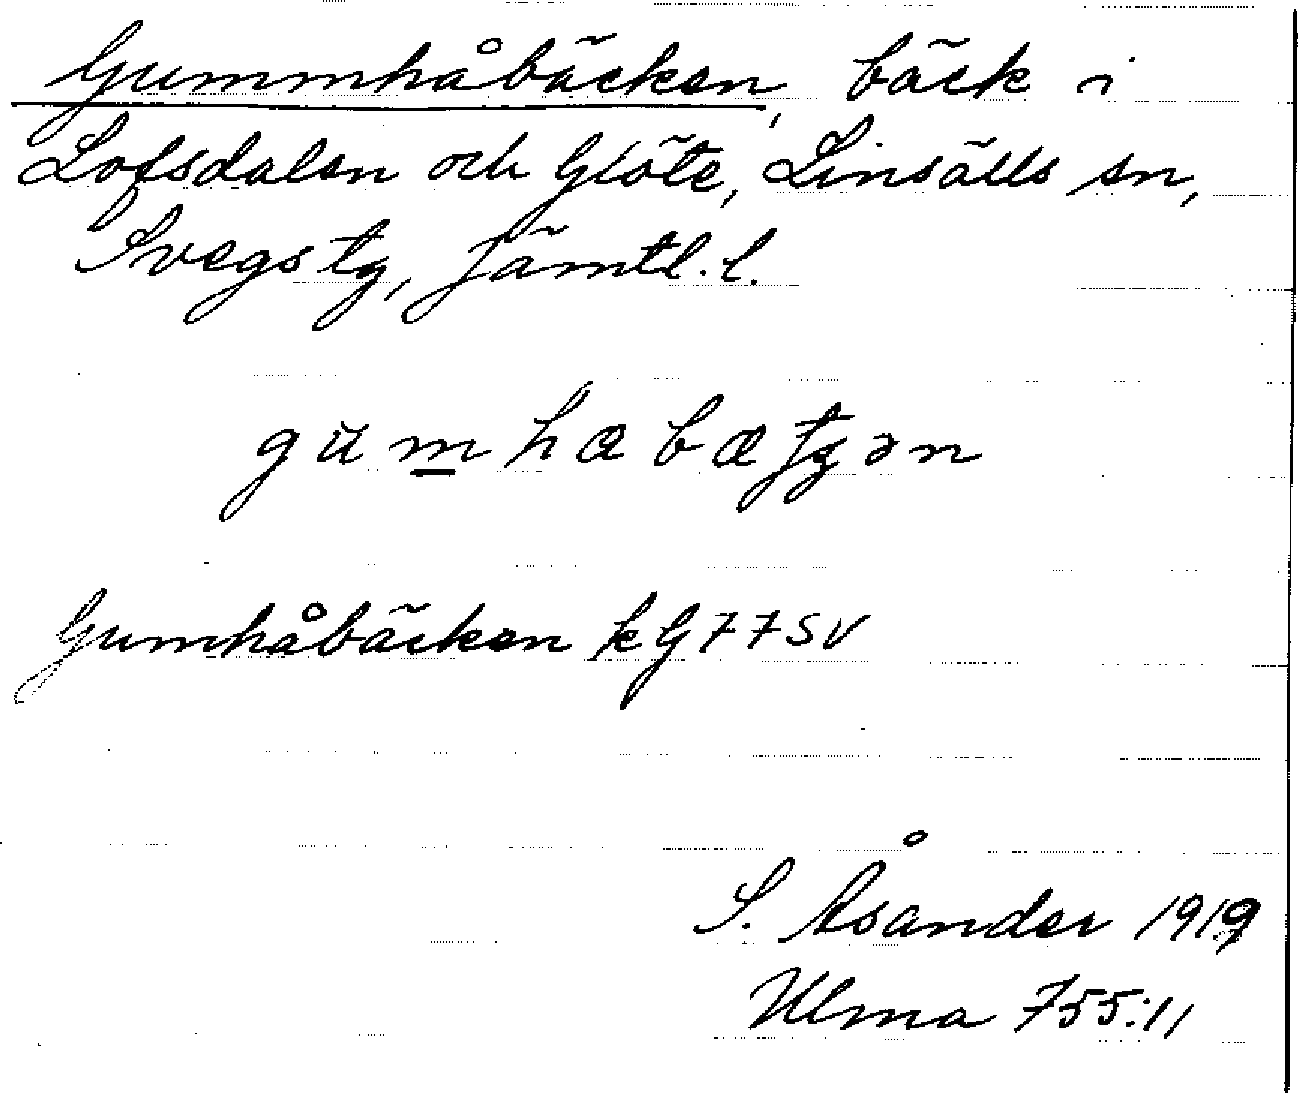 Gummhåbäcken, bäck i
Lofsdalen och Glöte, Linsälls sn,
Svegs tg, Jämtl. l.
Gumhåbäcken k G77SV
S. Åsander 1919
Ulma 755:11